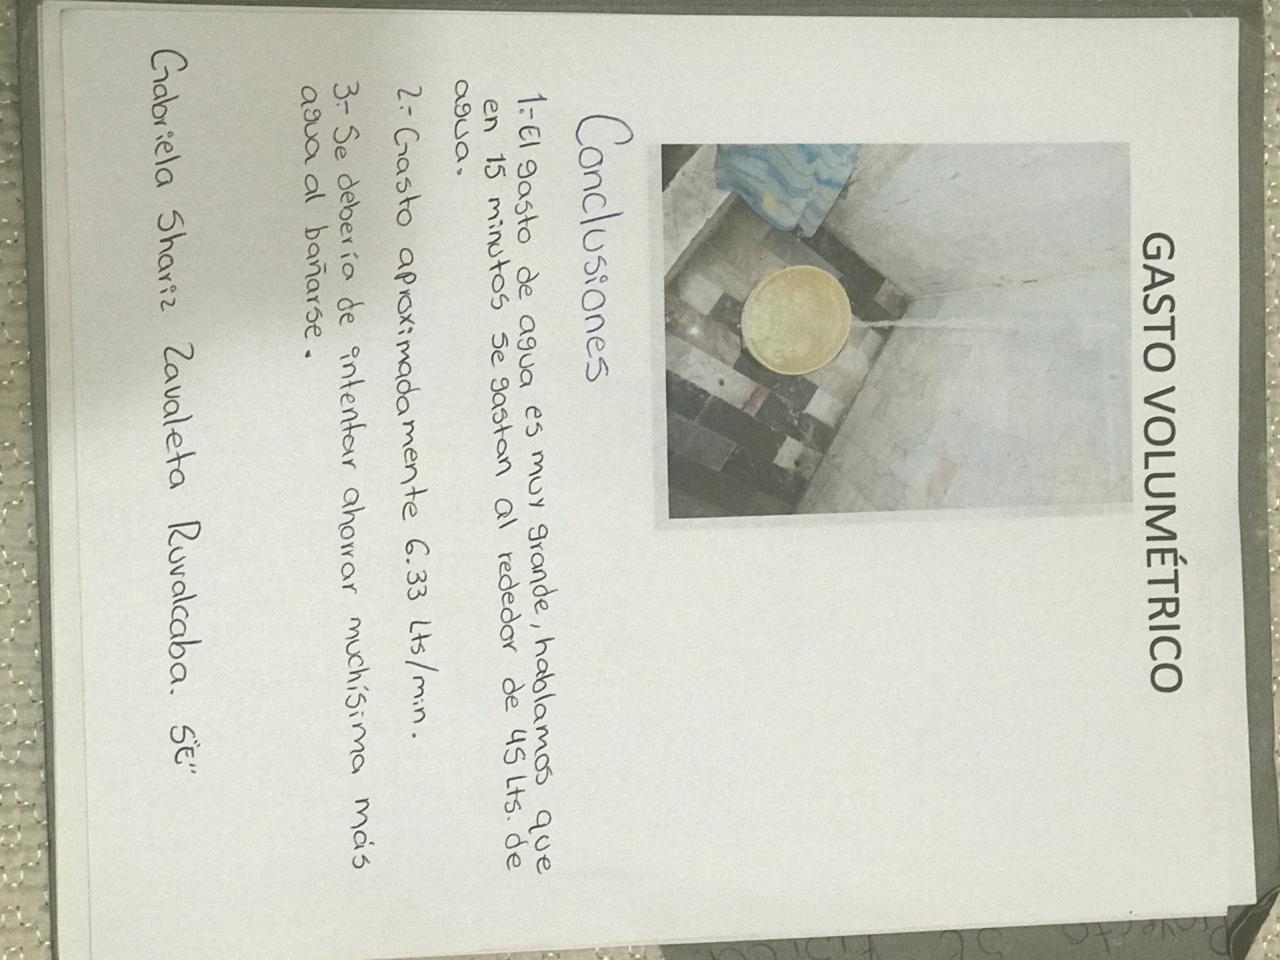 GASTO VOLUMÉTRICO
Conclusiones
1.- El gasto de agua es muy grande, hablamos que
en 15 minutos se gastan al rededor de 45 Lts. de
agua.
2.- Gasto aproximadamente 6.33 Lts/min.
3.- Se debería de intentar ahorrar muchísima más
agua al bañarse.
Gabriela Shariz Zavaleta Ruvalcaba. 5"E"
Proyecto 5E Física